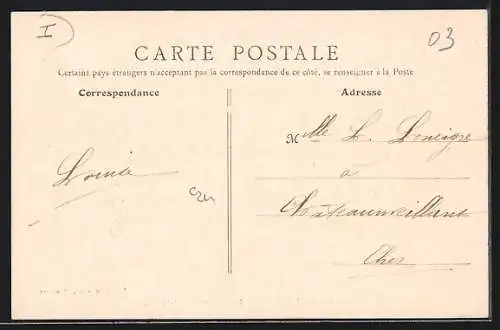 I
03
CARTE POSTALE
Certains pays étrangers n'acceptant pas la correspondance de ce côté, se renseigner à la Poste
Correspondance
Adresse
Mlle L. Leneigre
à
Louise
Châteaumeillant
Cher